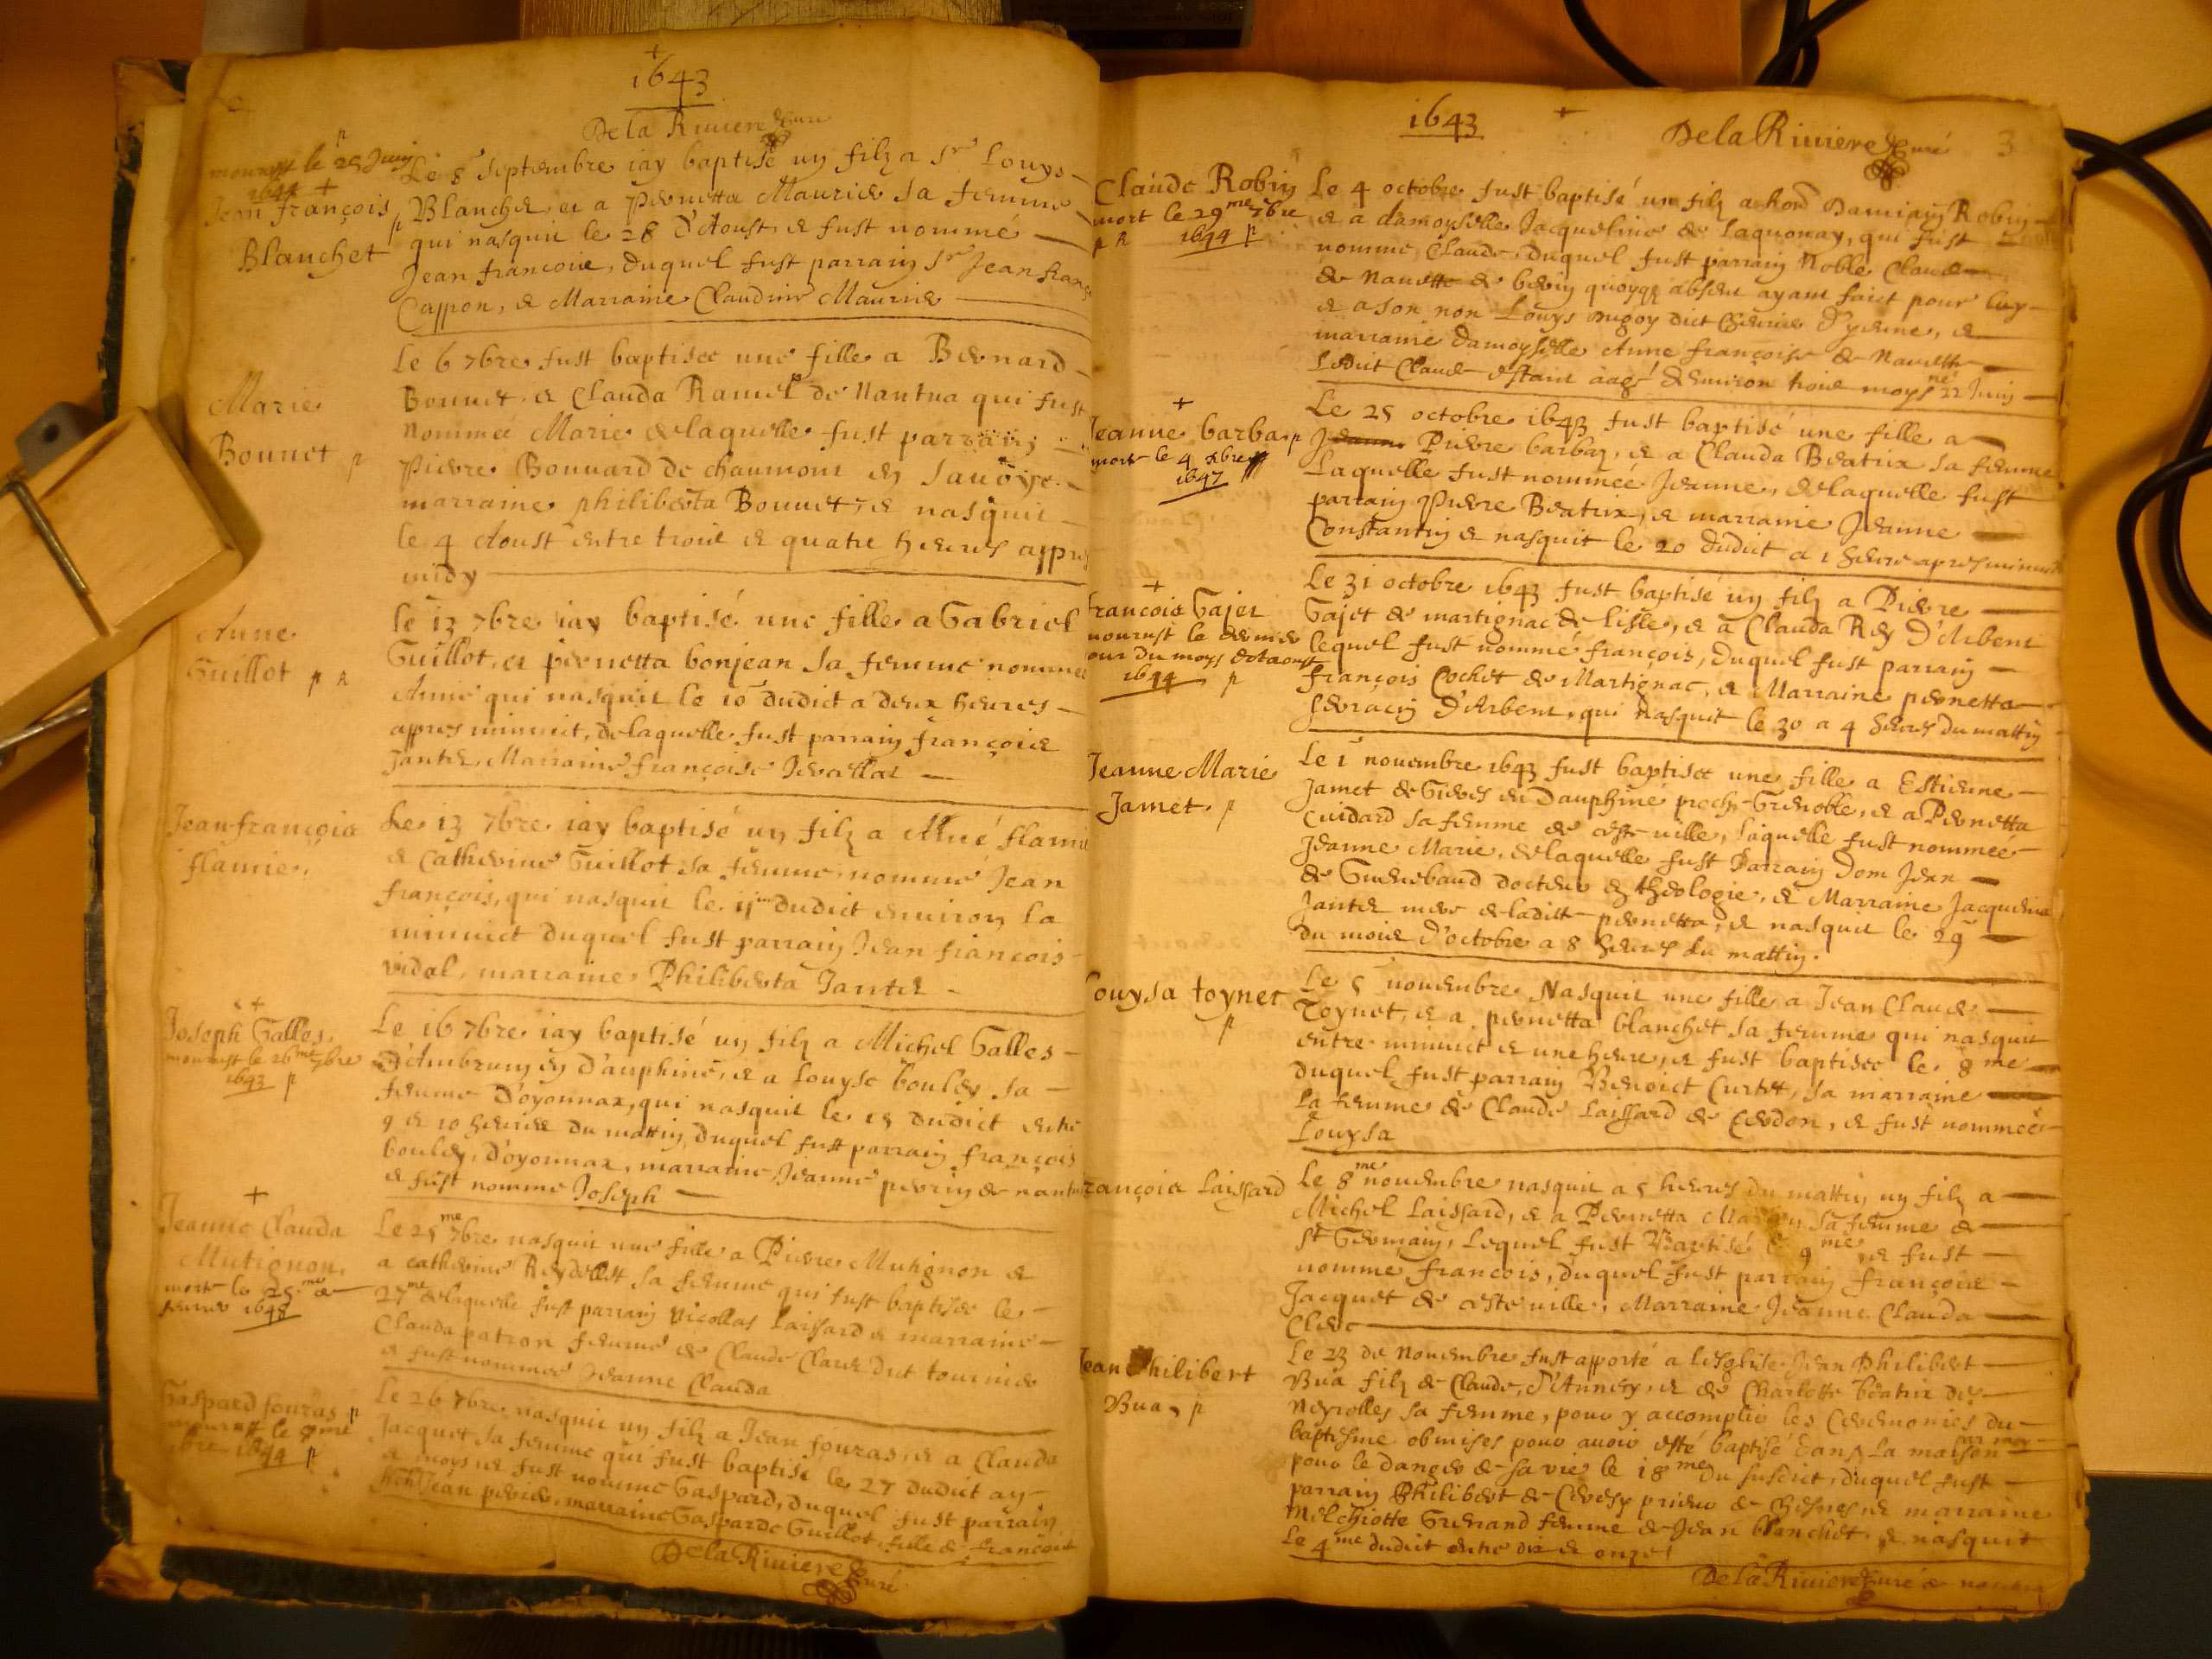 1643
De la Riviere Curé
mourust le 25 Juin
1644
Jean françois
Blanchet
Le 8 Septembre iay baptisé un filz a Sr Louys
Blanchet et a Pernetta Maurier sa femme
qui nasquit le 28 d'Aoust et fust nommé
Jean francois, duquel fust parrain Sr Jean franç
Cappon, et Marraine Claudine Maurier
Marie
Bonnet p
Le 6 7bre fust baptisee une fille a Bernard
Bonnet et Clauda Ramel de Nantua qui fust
nommeé Marie de laquelle fust parrain
Pierre Bonnard de chaumont en Savoye
marraine philiberta Bonnet, et nasquit
le 4 Aoust entre trois et quatre heures appres
midy
Anne
Guillot p R
le 13 7bre iay baptisé une fille a Gabriel
Guillot, et pernetta bonjean sa femme nommeé
Anne qui nasquit le 10 dudict a deux heures
appres minuict, de laquelle fust parrain françois
Janter, Marraine françoise
Jean françois
flamier
Le 13 7bre iay baptisé un filz a Aimé flamier
et Catherine Guillot sa femme nommé Jean
françois, qui nasquit le 11me dudict environ la
minuict duquel fust parrain Jean francois
vidal, marraine Philiberta Janter
Joseph Galles
mourust le 26me 7bre
1643 p
Le 16 7bre iay baptisé un filz a Michel Galles
d'Ambrung en d'auphiné, et a Louyse bouley sa
femme d'oyonnax, qui nasquit le 15 dudict entre
9 et 10 heures du mattin, duquel fust parrain françois
bouley, d'oyonnax, marraine Jeanne perrin de nantua
et fust nommé Joseph
Jeanne Clauda
Mutignon
morte le 25me de
fevrier 1648
Le 25me 7bre nasquit une fille a Pierre Mutignon et
a catherine Reydellet sa femme qui fust baptisée le
27me de laquelle fust parrain Nicollas Laissard et marraine
Clauda patron femme de Claude Claret dict tournier
et fust nommeé Jeanne Clauda
Gaspard fouras p
mourust le 8me
bre 1644 p
Le 26 7bre nasquit un filz a Jean fouras, et a Clauda
Jacquet sa femme qui fust baptisé le 27 dudict an
et moys et fust nommé Gaspard, duquel fust parrain
Jean perrier, marraine Gasparde Guillot fille de françois
De la Riviere Curé
1643
De la Riviere Curé 3
Claude Robin
mort le 29me 7bre
p R 1644 p
Le 4 octobre fust baptisé un filz a hon Damian Robin
et a damoyselle Jacqueline de Laquonay, qui fust
nommé Claude, duquel fust parrain Noble Claude
de Navette de quoyqz absent ayant faict pour luy
et a son non Louys dict d'yenne, et
marraine damoyselle Anne françoise de Navette
Ledict Claude estant aagé d'environ trois moys né 22 Juin
Jeanne barba p
morte le 4
1647
Le 25 octobre 1643 fust baptisé une fille a
Jeanne Pierre barbaz, et a Clauda Beatrix sa femme
Laquelle fust nommeé Jeanne, de laquelle fust
parrain Pierre Beatrix, et marraine Jeanne
Constantin et nasquit le 20 dudict a 1 heure apres minuict
francois Gajet
mourust le dernier
our du moys d'Aoust
1644 p
Le 31 octobre 1643 fust baptisé un filz a Pierre
Gajet de martignac de Lisle, et a Clauda Rey d'Arbent
lequel fust nommé françois, duquel fust parrain
françois Cochet de Martignac, et Marraine pernetta
d'Arbent, qui nasquit le 30 a 4 heures du mattin
Jeanne Marie
Jamet p
Le 1 novembre 1643 fust baptisee une fille a Estienne
Jamet de Gieres en Dauphiné proche Grenoble, et a Pernetta
Cuidard sa femme de ceste ville, laquelle fust nommeé
Jeanne Marie, de laquelle fust Parrain Dom Jean
de Grenebaud docteur en theologie, et Marraine Jacquema
Janter mere de ladicte pernetta, et nasquit le 29
du mois d'octobre a 8 heures du mattin.
Louysa toynet
p
Le 5 novembre Nasquit une fille a Jean Claude
Toynet, et a pernetta blanchet sa femme qui nasquit
entre minuict et une heure, et fust baptisee le 8me
duquel fust parrain Benoict Curtet, sa marraine
La femme de Claude Laissard de Cerdon, et fust nommeé
Louysa
françois Laissard
Le 8me novembre nasquit a 5 heures du mattin un filz a
Michel Laissard, et a Pernetta sa femme de
St Germain, lequel fust Baptisé le 9me et fust
nommé francois, duquel fust parrain françois
Jacquet de ceste ville, Marraine Jeanne Clauda
Clerc
Jean Philibert
Bua, p
Le 23 de Novembre fust apporté a lesglise Jean Philibert
Bua filz de Claude, d'Annecy, et de Charlotte beatrix des
Neyrolles sa femme, pour y accomplir les Ceremonies du
baptesme obmises pour avoir esté baptisé dans la maison par moy
pour le danger de sa vie le 18me du susdict, duquel fust
parrain Philibert de prieur de et marraine
Melchiotte Grenand femme de Jean blanchet, et nasquit
le 4me dudict entre dix et onze
De la Riviere Curé de